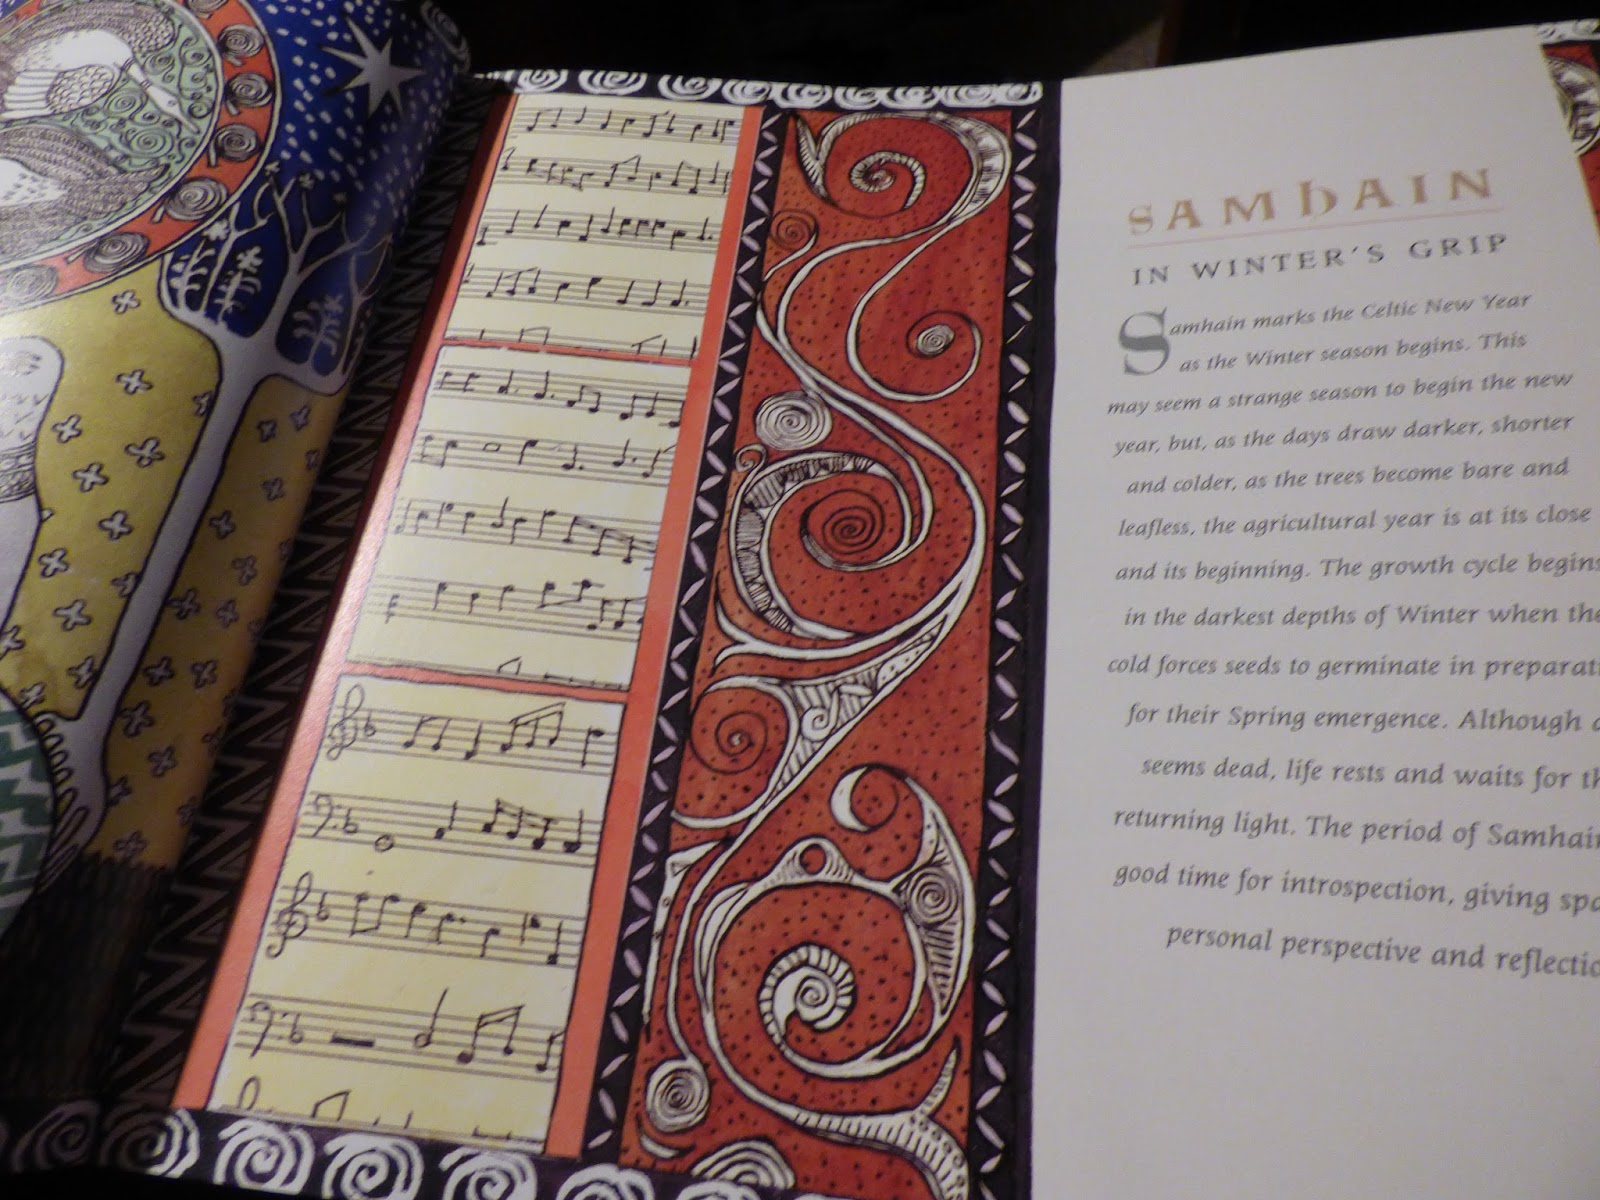 SAMhAIN
IN WINTER'S GRIP
Samhain marks the Celtic New Year
as the Winter season begins. This
may seem a strange season to begin the new
year, but, as the days draw darker, shorter
and colder, as the trees become bare and
leafless, the agricultural year is at its close
and its beginning. The growth cycle begins
in the darkest depths of Winter when the
cold forces seeds to germinate in
for their Spring emergence. Although
seems dead, life rests and waits for
returning light. The period of Samhain
good time for introspection, giving
personal perspective and